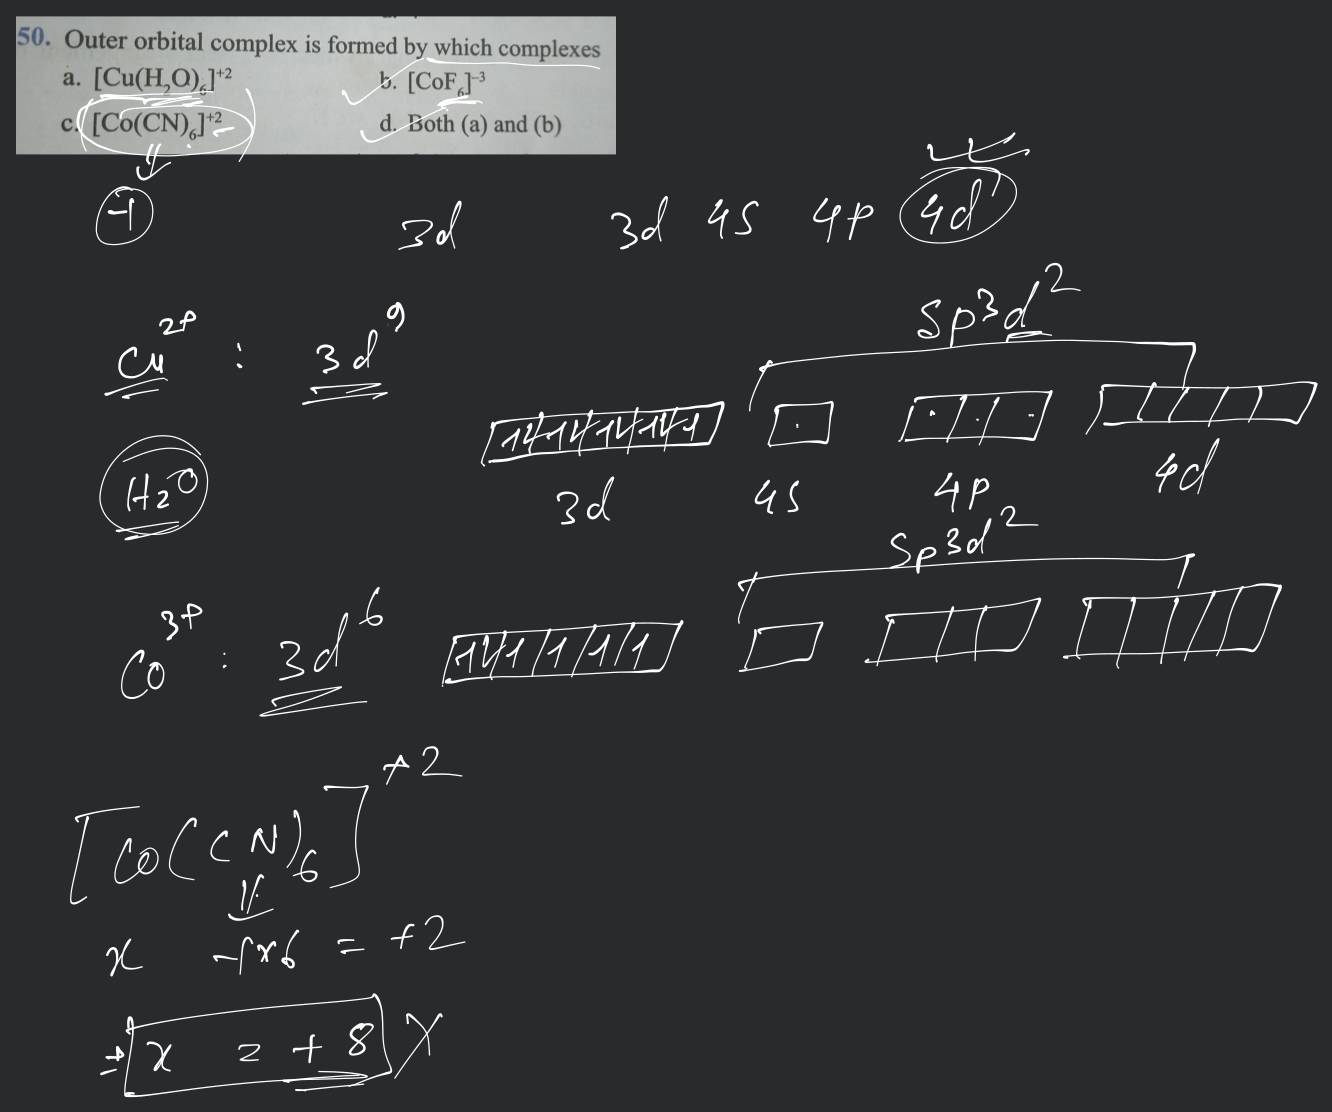 50. Outer orbital complex is formed by which complexes
a. [Cu(H₂O)₆]⁺² b. [CoF₆]⁻³
c. [Co(CN)₆]⁺² d. Both (a) and (b)
-1
3d 3d 4s 4p 4d
sp³d²
Cu²⁺ : 3d⁹
3d 4s 4p 4d
H₂O
sp³d²
Co³⁺ : 3d⁶
[Co(CN)₆]⁺²
x -1×6 = +2
⇒ x = +8 X